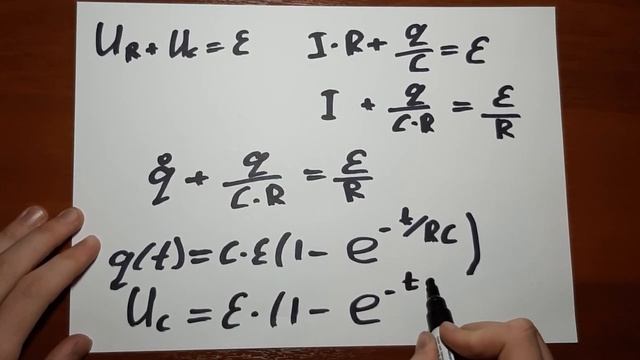 U_R + U_C = ε
I·R + q/C = ε
I + q/(C·R) = ε/R
q̊ + q/(C·R) = ε/R
q(t) = C·ε(1 - e^(-t/RC))
U_C = ε·(1 - e^(-t